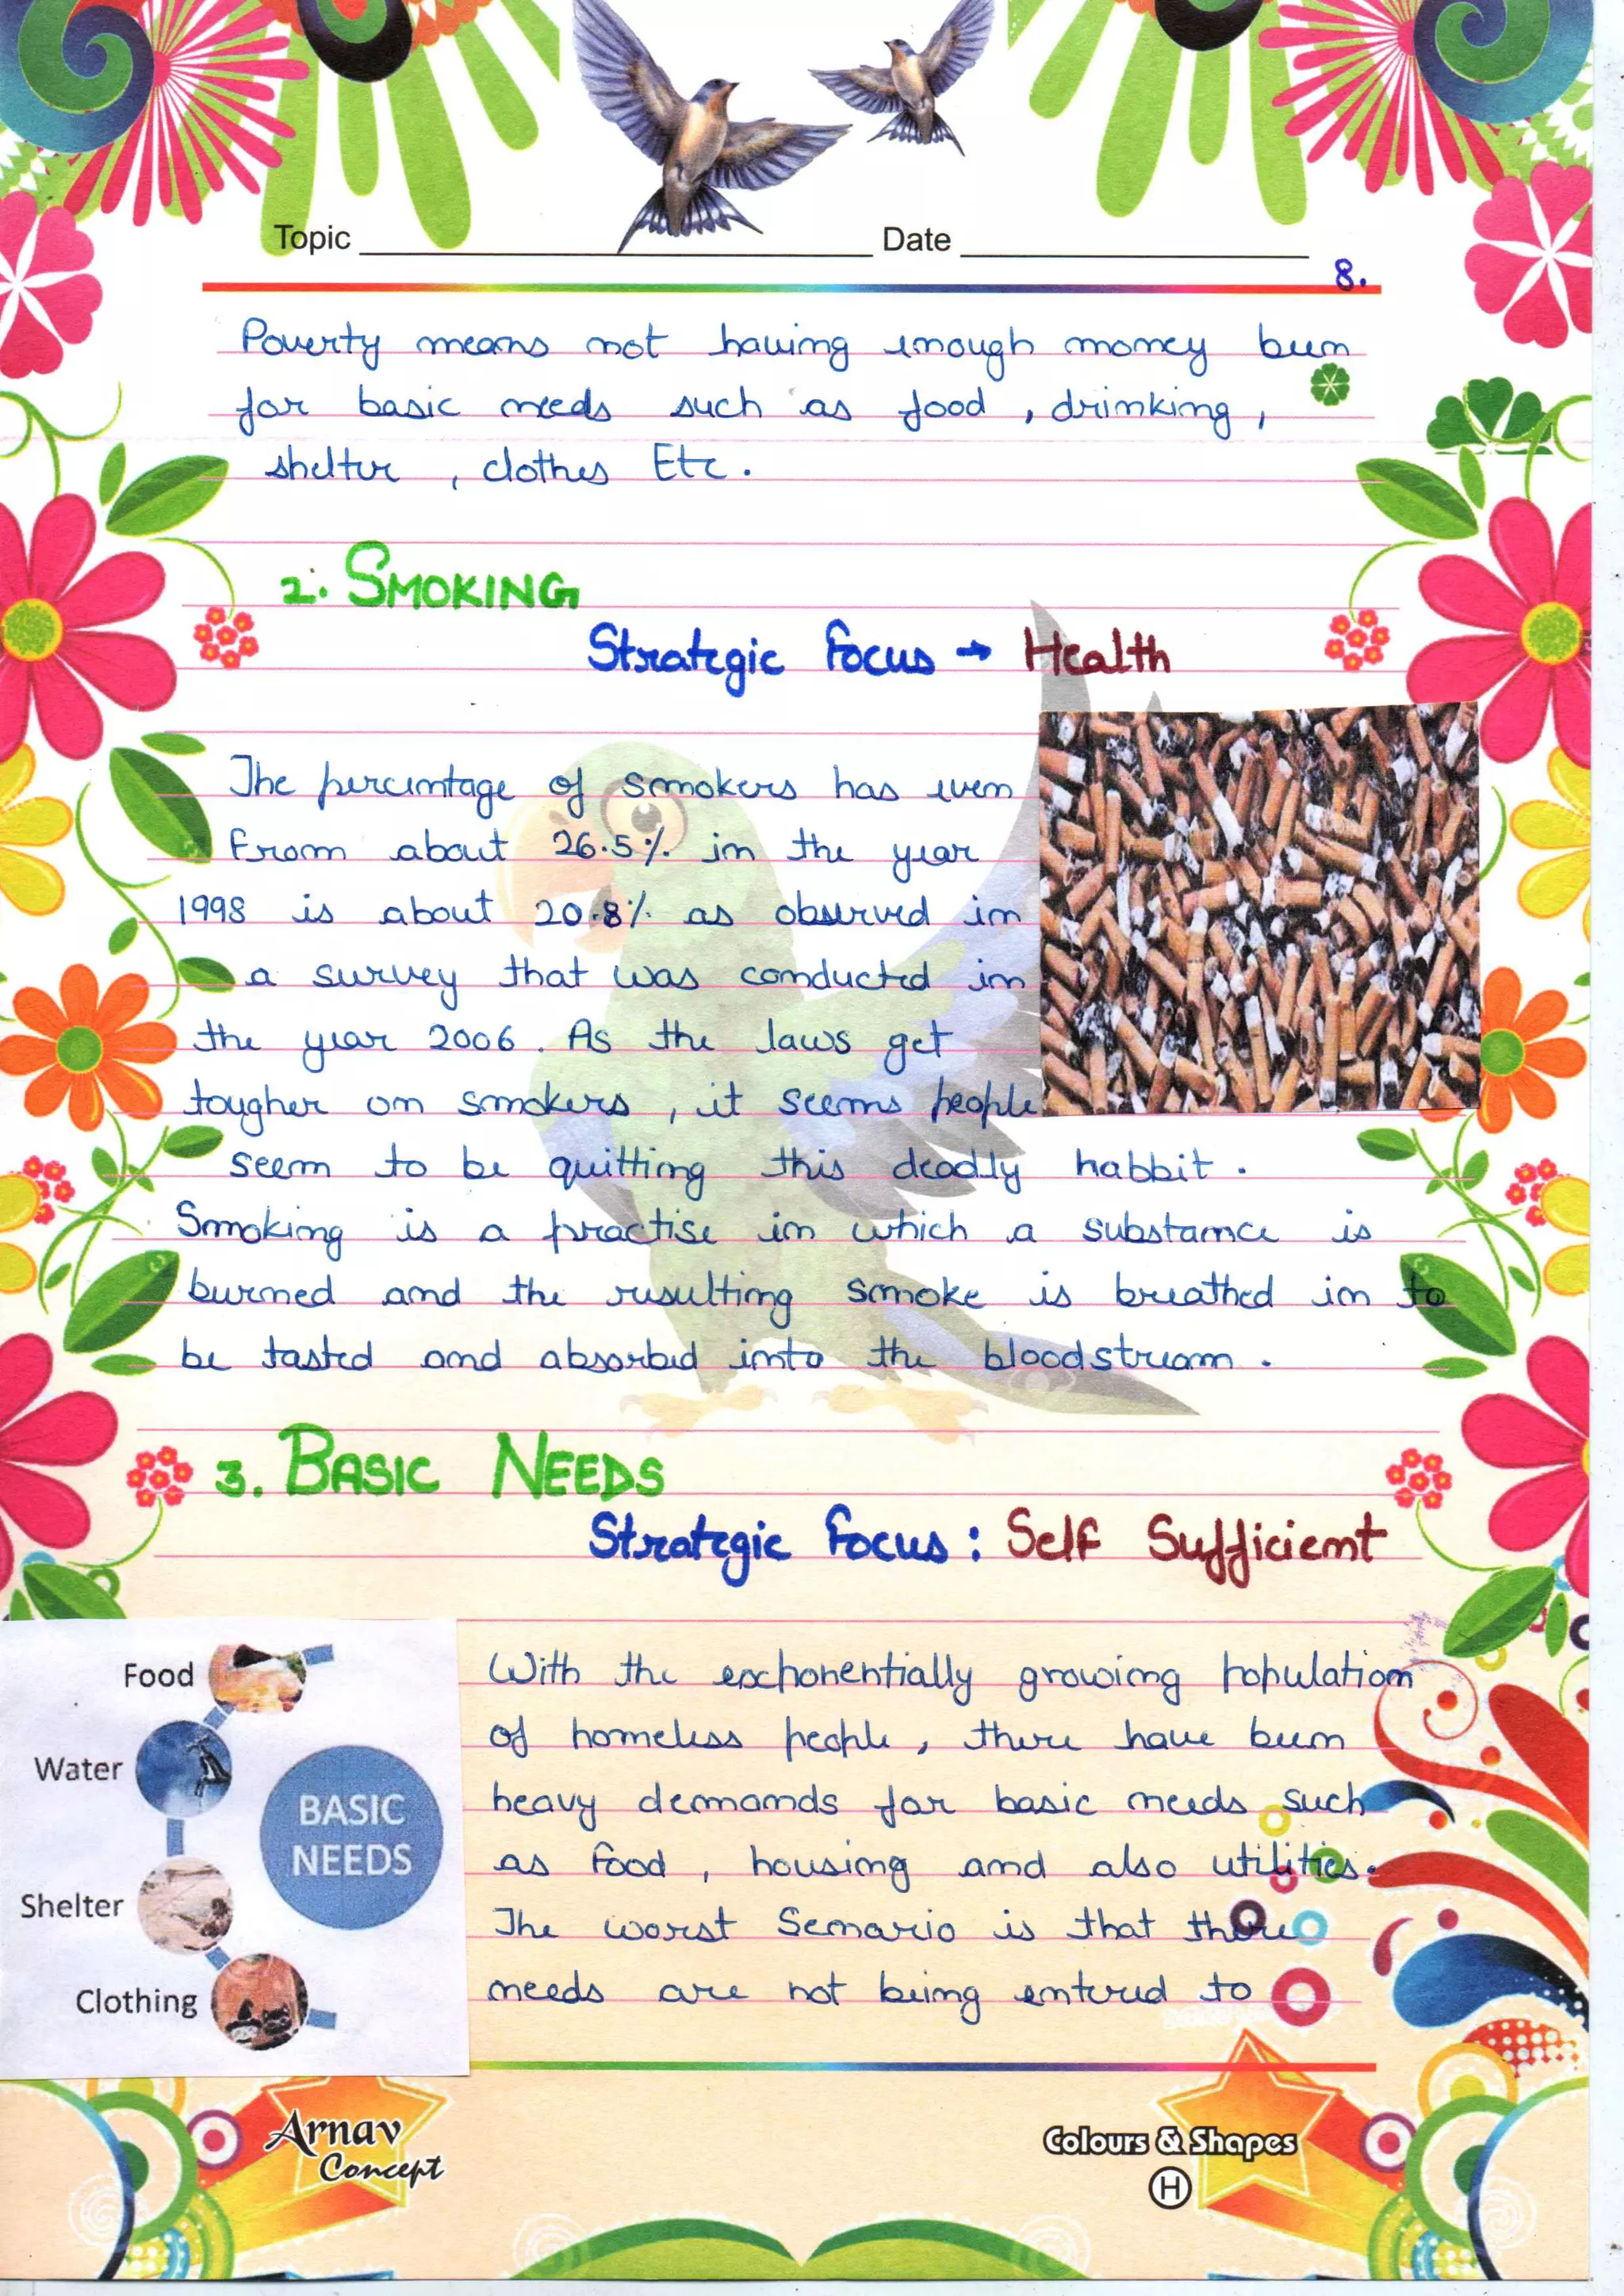 Topic
Date
8.
Poverty means not having enough money been
for basic needs such as food , drinking ,
shelter , clothes Etc .
2. SMOKING
Strategic Focus → Health
The percentage of smokers has even
from about 26.5% in the year
1998 is about 20.8% as observed in
a survey that was conducted in
the year 2006 . As the laws get
tougher on smokers , it seems people
seem to be quitting this deadly habbit .
Smoking is a practise in which a substance is
burned and the resulting smoke is breathed in to
be tasted and absorbed into the bloodstream .
3. BASIC NEEDS
Strategic Focus : Self Sufficient
Food
Water
Shelter
Clothing
BASIC
NEEDS
With the exponentially growing population
of homeless people , there have been
heavy demands for basic needs such
as food , housing and also utilities .
The worst Senario is that there
needs are not being entered to
Arnav
Concept
Colours & Shapes
H